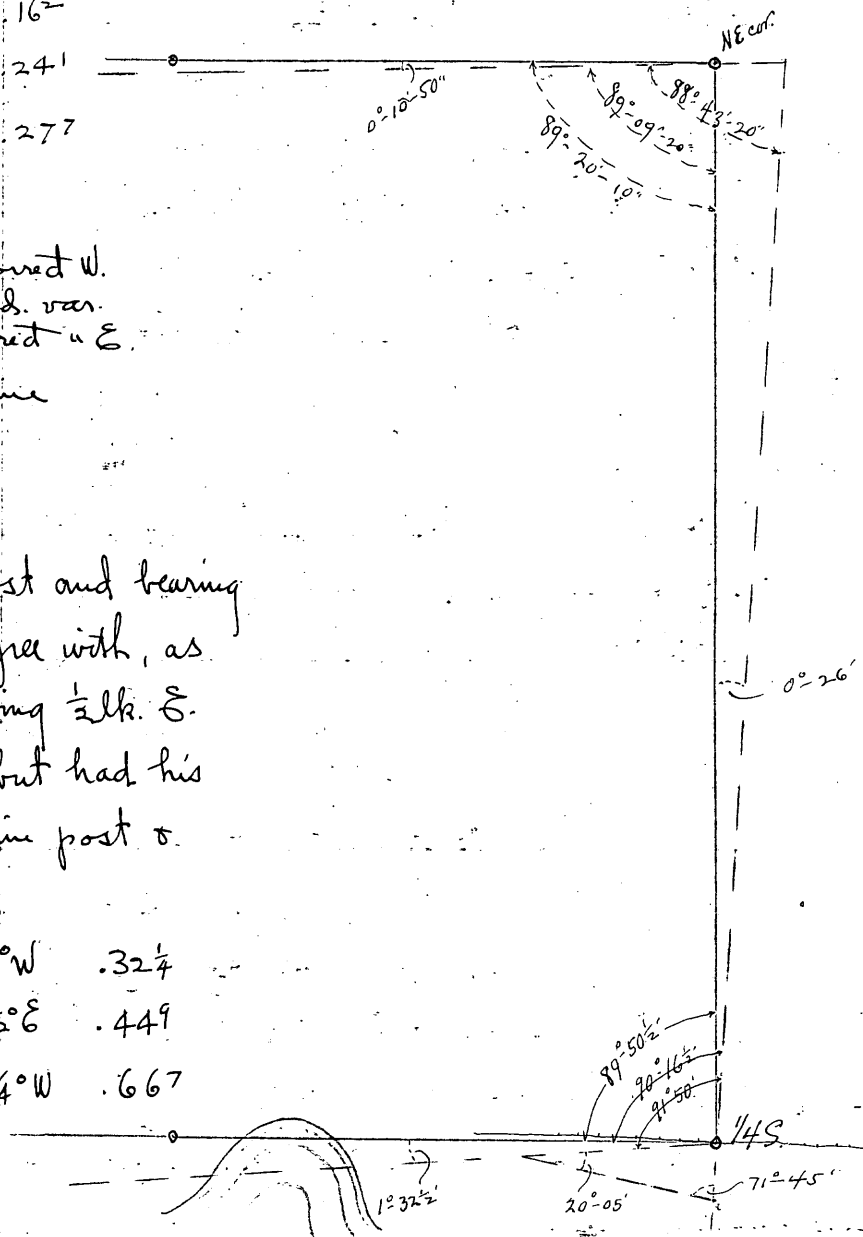 .16²
.241
.277
NE cor.
0°-10'-50"
88°-43'-20"
89°-09'-20"
89°-20'-10"
W.
var.
E.
st and bearing
with, as
½ lk. E.
but had his
post
0°-26'
°W .32¼
°E .449
4°W .667
89°-50½'
90°-16½'
91°-50'
1/4 S.
1°-32½'
20°-05'
71°-45'